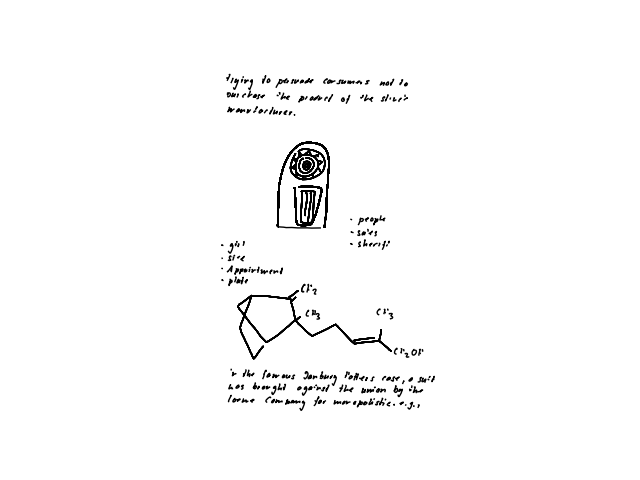 trying to persuade consumers not to
purchase the product of the
manufacturer.
- people
- sales
- sheriff
- girl
- size
- Appointment
- plate
CH2
CH3
CH3
CH2OH
in the famous Danbury Hatters case, a suit
was brought against the union by the
Loewe Company for monopolistic. e.g.,